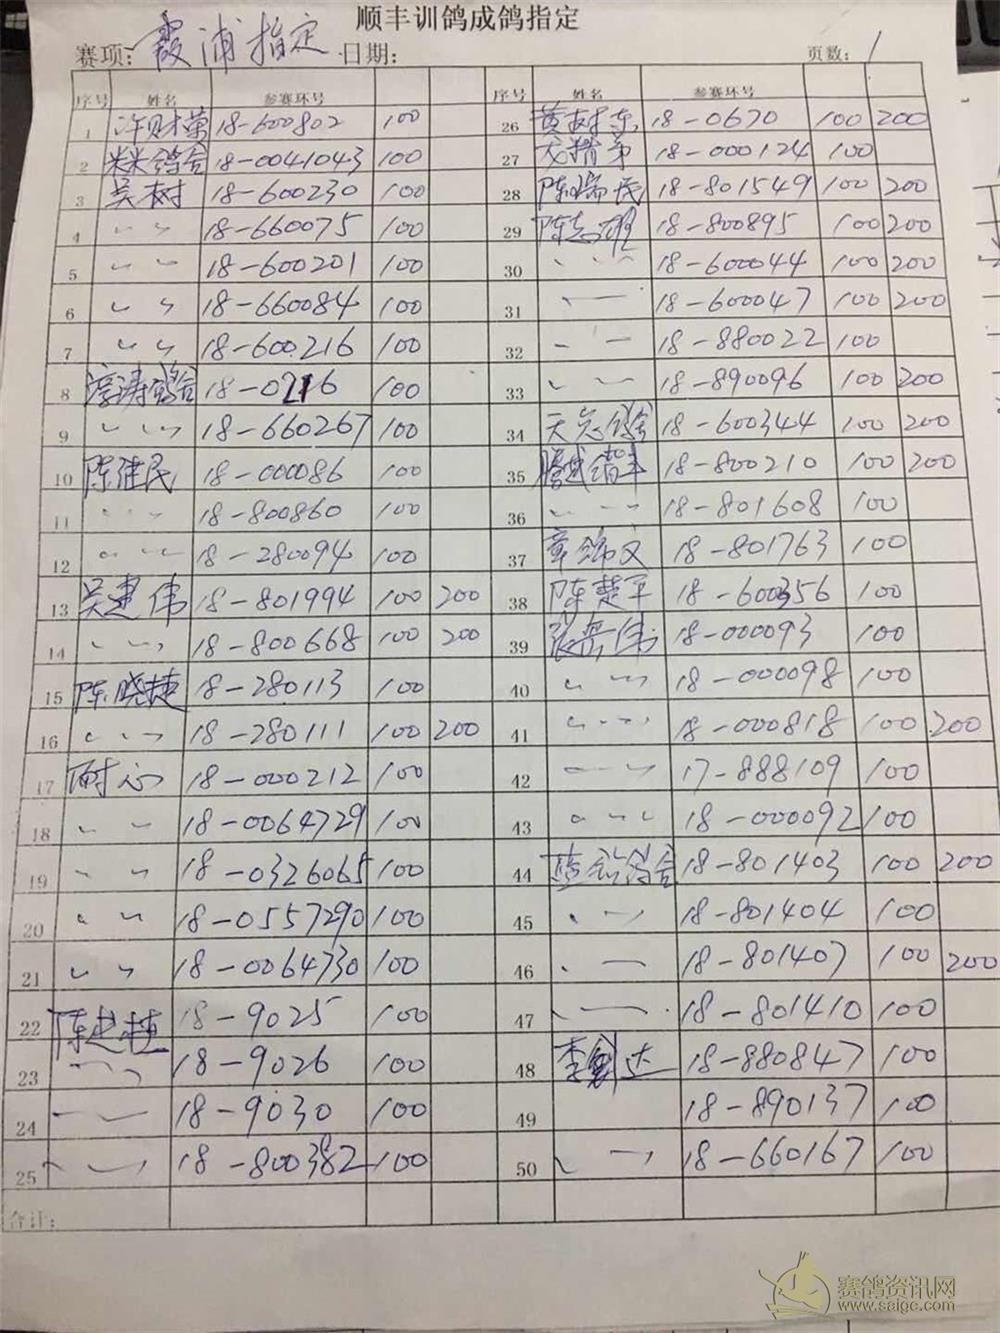 顺丰训鸽成鸽指定
赛项: 霞浦指定 日期: 页数: 1
序号 姓名 参赛环号 序号 姓名 参赛环号
1 许财荣 18-600802 100 26 黄树东 18-0670 100 200
2 米米鸽舍 18-0041043 100 27 尤精弟 18-000124 100
3 吴树 18-600230 100 28 陈瑞民 18-801549 100 200
4 〃 〃 18-660075 100 29 陈志雄 18-800895 100 200
5 〃 〃 18-600201 100 30 〃 〃 18-600044 100 200
6 〃 〃 18-660084 100 31 〃 18-600047 100 200
7 〃 〃 18-600216 100 32 〃 18-880022 100
8 淳涛鸽舍 18-0216 100 33 〃 〃 18-890096 100 200
9 〃 〃 18-660267 100 34 鸽舍 18-600344 100 200
10 陈健民 18-000086 100 35 18-800210 100 200
11 〃 〃 18-800860 100 36 〃 〃 18-801608 100
12 〃 〃 18-280094 100 37 章 18-801763 100
13 吴建伟 18-801994 100 200 38 陈楚平 18-600356 100
14 〃 〃 18-800668 100 200 39 张 伟 18-000093 100
15 陈晓捷 18-280113 100 40 〃 〃 18-000098 100
16 〃 〃 18-280111 100 200 41 〃 〃 18-000818 100 200
17 耐心 18-000212 100 42 〃 〃 17-888109 100
18 〃 〃 18-0064729 100 43 〃 〃 18-000092 100
19 〃 〃 18-0326065 100 44 鸽舍 18-801403 100 200
20 〃 〃 18-0557290 100 45 〃 〃 18-801404 100
21 〃 〃 18-0064730 100 46 〃 〃 18-801407 100 200
22 陈 18-9025 100 47 〃 18-801410 100
23 〃 〃 18-9026 100 48 李 达 18-880847 100
24 〃 〃 18-9030 100 49 18-890137 100
25 〃 〃 18-800382 100 50 〃 〃 18-660167 100
合计:
赛鸽资讯网
www.saigc.com